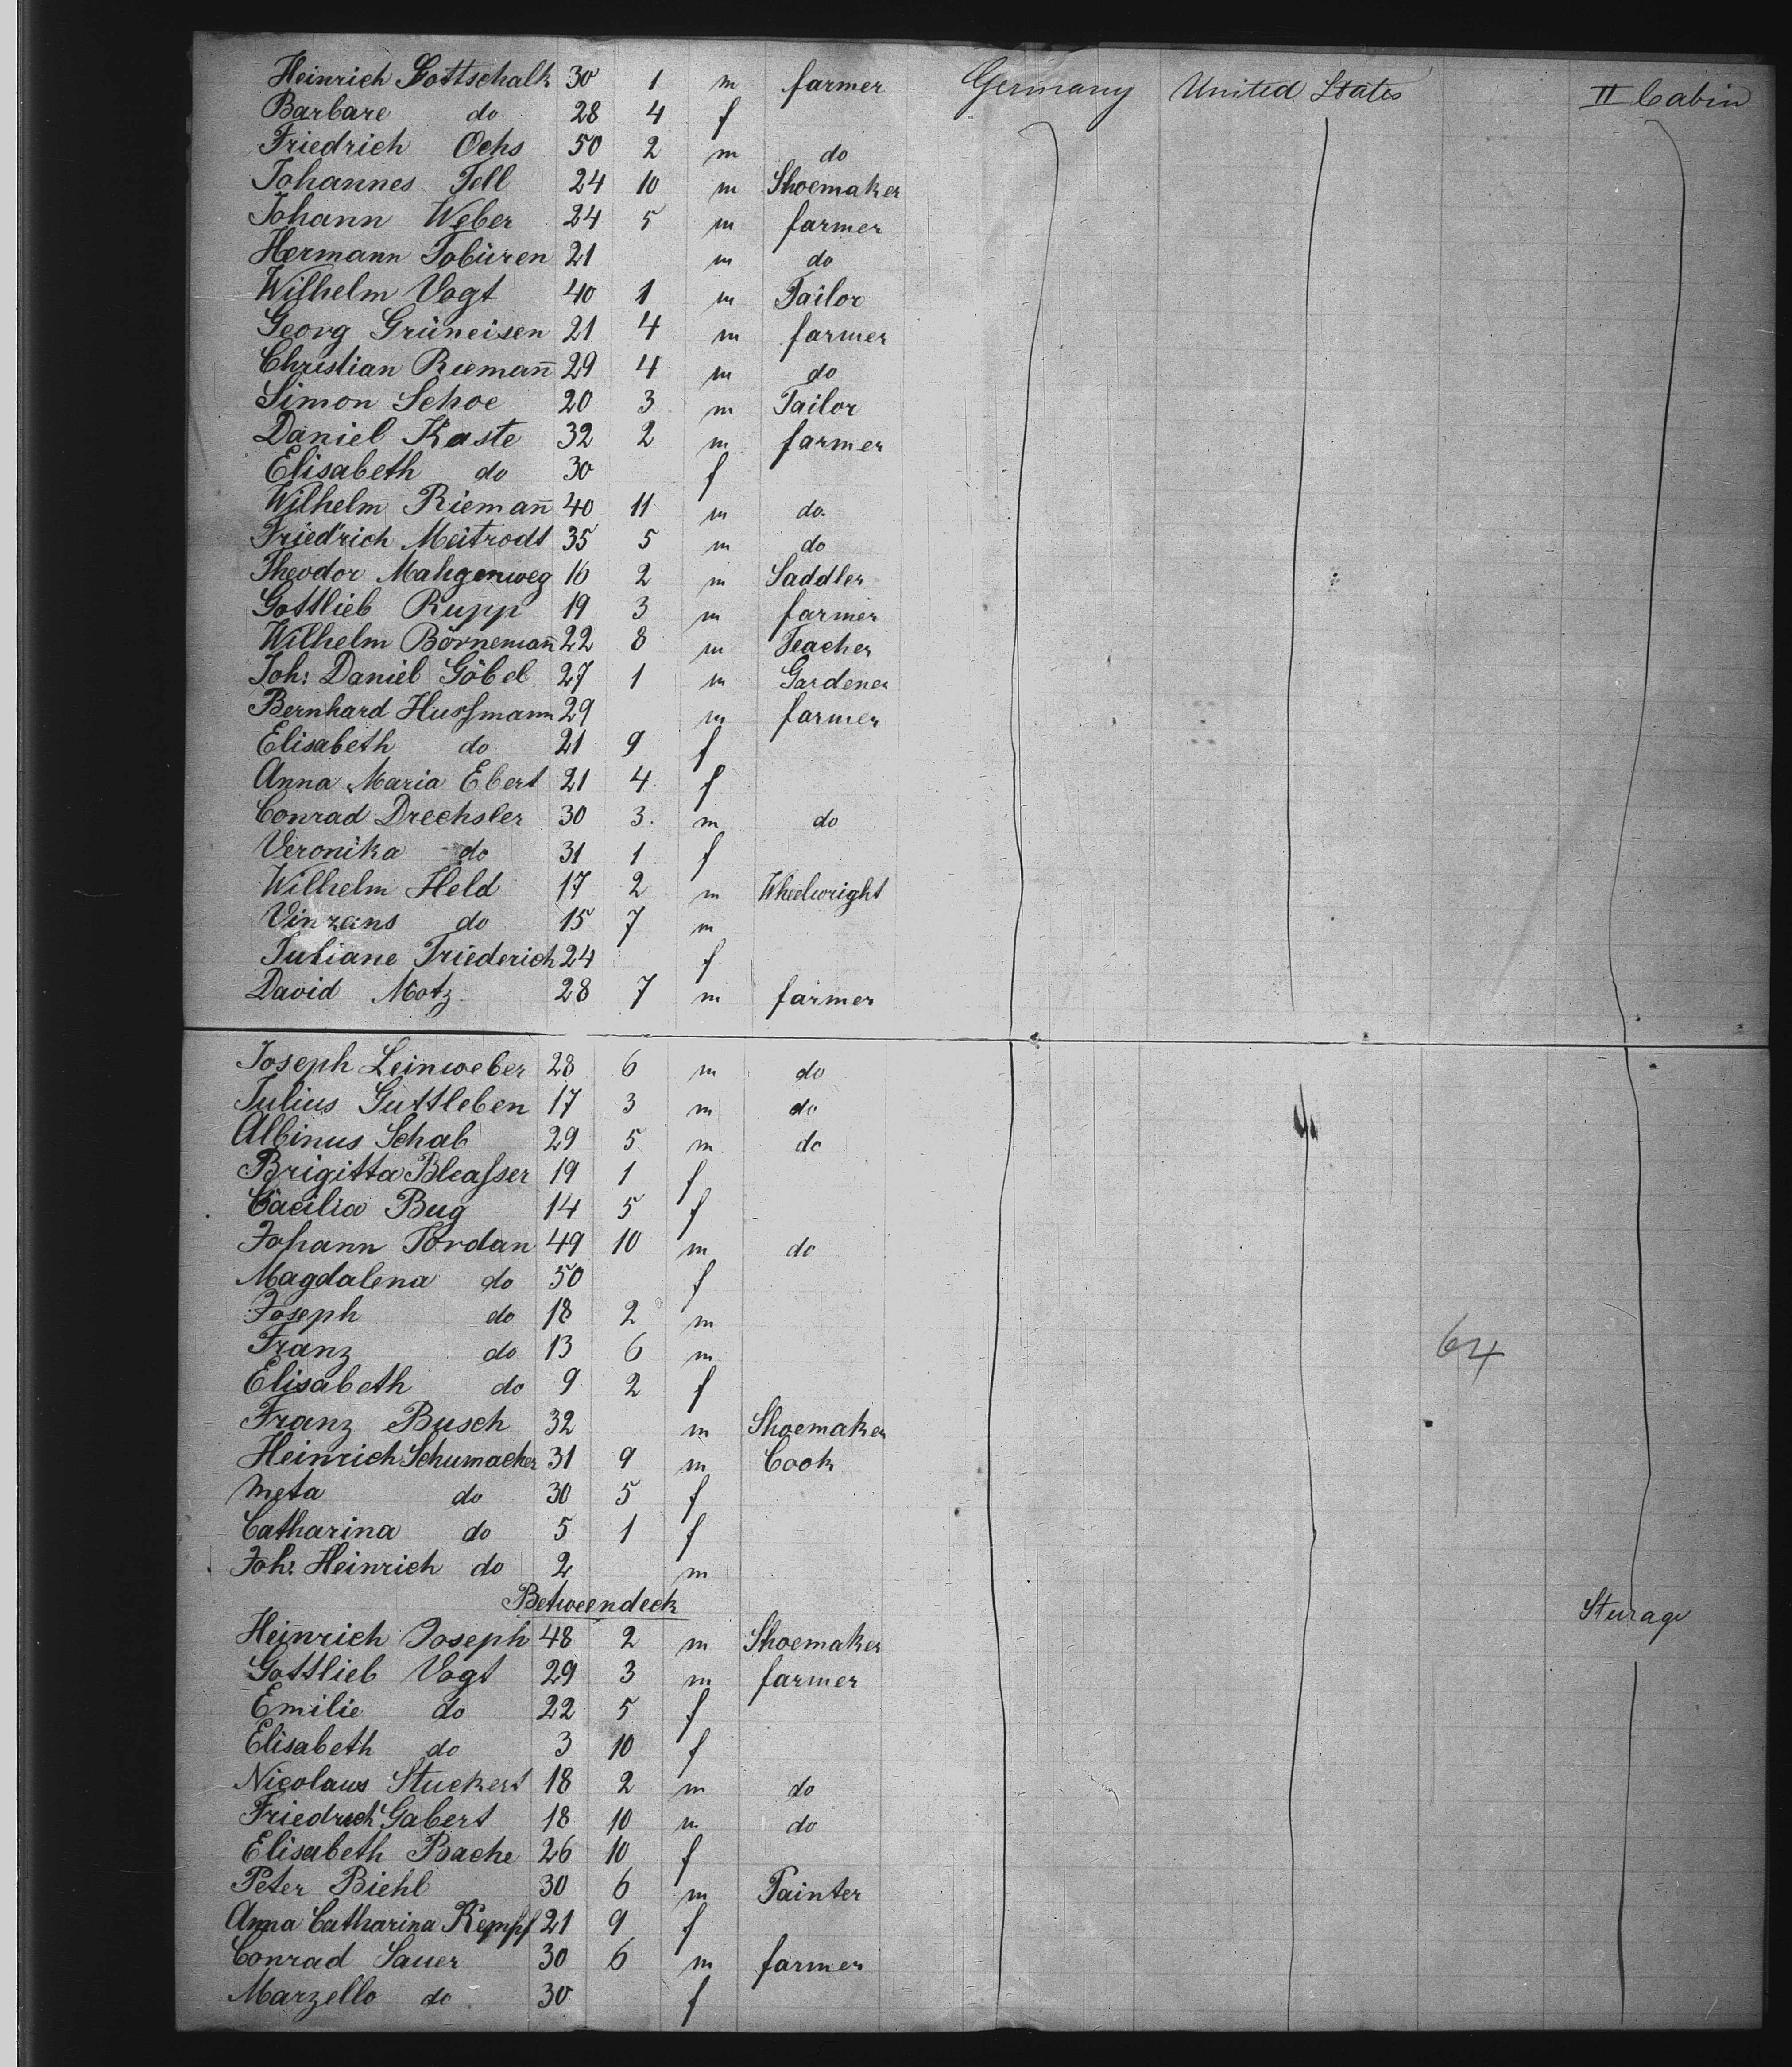 Heinrich Gottschalk 30 1 m farmer Germany United States II Cabin
Barbare do 28 4 f
Friedrich Ochs 50 2 m do
Johannes Tell 24 10 m Shoemaker
Johann Weber 24 5 m farmer
Hermann Tobüren 21 m do
Wilhelm Vogt 40 1 m Tailor
Georg Grüneisen 21 4 m farmer
Christian Riemañ 29 4 m do
Simon Schoe 20 3 m Tailor
Daniel Kaste 32 2 m farmer
Elisabeth do 30 f
Wilhelm Riemañ 40 11 m do
Friedrich Meitrodt 35 5 m do
Theodor Mahgenweg 16 2 m Saddler
Gottlieb Rupp 19 3 m farmer
Wilhelm Börnemañ 22 8 m Teacher
Joh: Daniel Göbel 27 1 m Gardener
Bernhard Husfmann 29 m farmer
Elisabeth do 21 9 f
Anna Maria Ebert 21 4 f
Conrad Drechsler 30 3 m do
Veronika do 31 1 f
Wilhelm Held 17 2 m Wheelwright
Vinzans do 15 7 m
Juliane Friederich 24 f
David Motz 28 7 m farmer
Joseph Leinweber 28 6 m do
Julius Guttleben 17 3 m do
Albinus Schab 29 5 m do
Brigitta Bleaſser 19 1 f
Cäcilia Bug 14 5 f
Johann Jordan 49 10 m do
Magdalena do 50 f
Joseph do 18 2 m
Franz do 13 6 m 64
Elisabeth do 9 2 f
Franz Busch 32 m Shoemaker
Heinrich Schumacher 31 9 m Cook
Meta do 30 5 f
Catharina do 5 1 f
Joh: Heinrich do 2 m
Betweendeck Sturage
Heinrich Joseph 48 2 m Shoemaker
Gottlieb Vogt 29 3 m farmer
Emilie do 22 5 f
Elisabeth do 3 10 f
Nicolaus Stuckert 18 2 m do
Friedrich Gabert 18 10 m do
Elisabeth Bache 26 10 f
Peter Biehl 30 6 m Painter
Anna Catharina Kempf 21 9 f
Conrad Sauer 30 6 m farmer
Marzello do 30 f